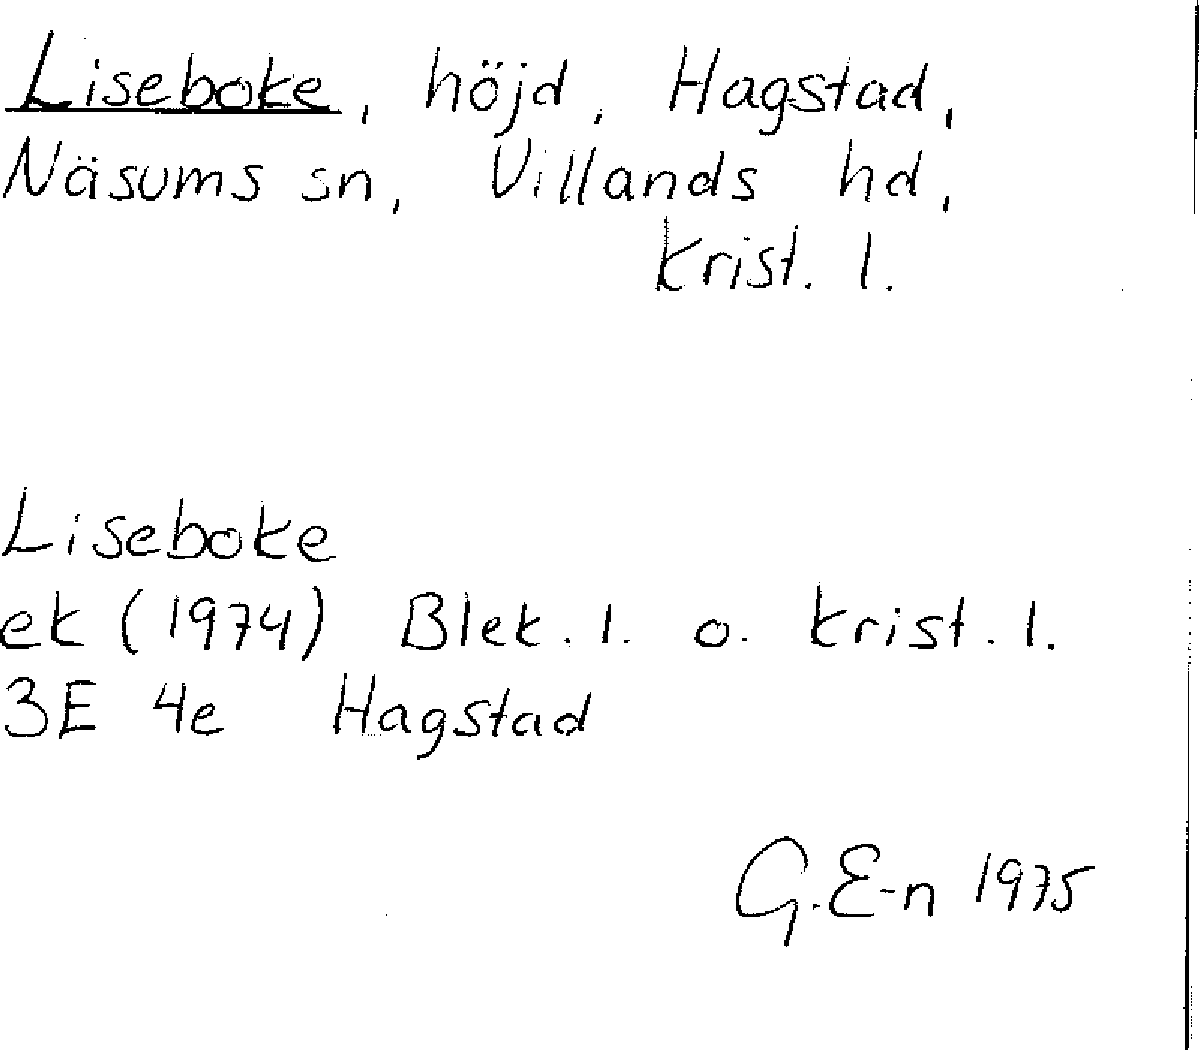 Liseboke, höjd, Hagstad,
Näsums sn, Villands hd,
Krist. l.
Liseboke
ek (1974) Blek. l. o. Krist. l.
3E 4e Hagstad
G. E-n 1975